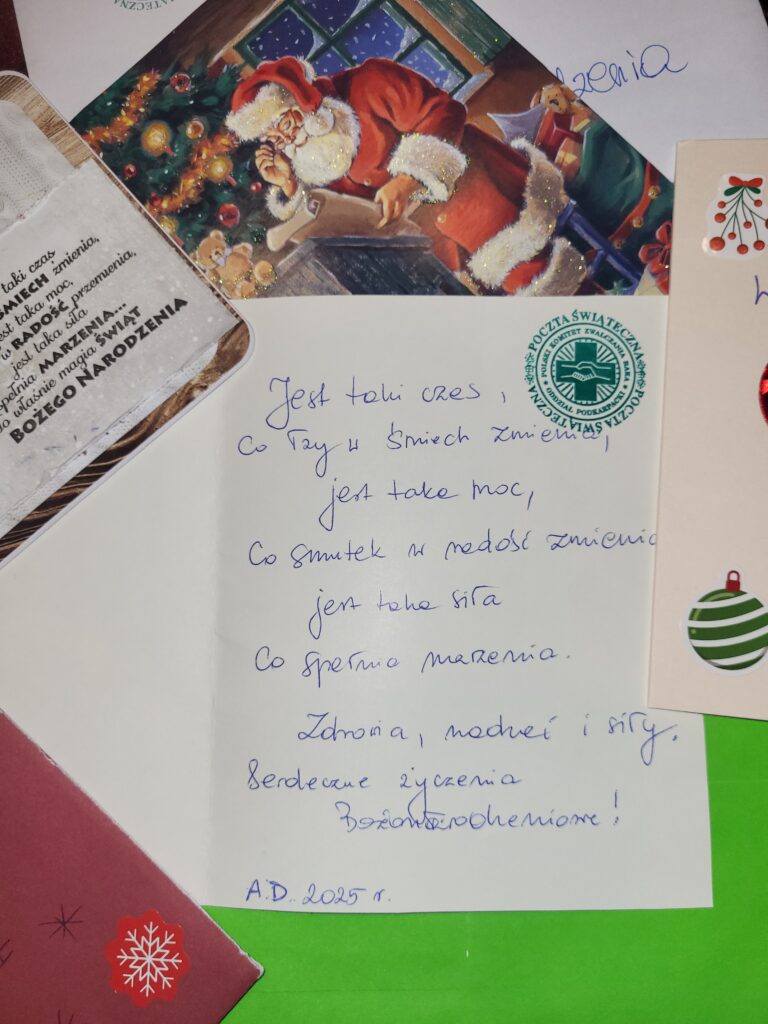 zenia
taki czas
ŚMIECH zmienia,
jest taka moc,
w RADOŚĆ przemienia,
jest taka siła
MARZENIA...
to właśnie magia ŚWIĄT
BOŻEGO NARODZENIA
POCZTA ŚWIĄTECZNA POCZTA ŚWIĄTECZNA
POLSKI KOMITET ZWALCZANIA RAKA
ODDZIAŁ PODKARPACKI
Jest taki czas,
Co łzy w śmiech zmienia,
jest taka moc,
Co smutek w radość zmienia
jest taka siła
Co spełnia marzenia.
Zdrowia, nadziei i siły.
Serdeczne życzenia
Bożonarodzeniowe!
A.D. 2025 r.